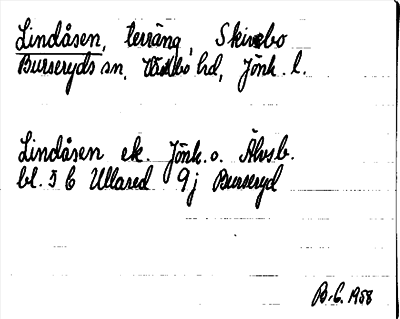 Lindåsen, terräng, Skirebo
Burseryds sn, Västbo hd, Jönk. l.
Lindåsen ek. Jönk. o. Älvsb.
bl. 5 C Ullared 9j Burseryd
B. C. 1958